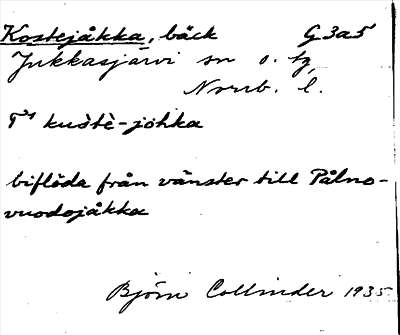 Kostejåkka, bäck G3a5
Jukkasjärvi sn o. tg,
Norrb. l.
kuòtè-jòhka
biflöda från vänster till Pålno-
vuodojåkka
Björn Collinder 1935